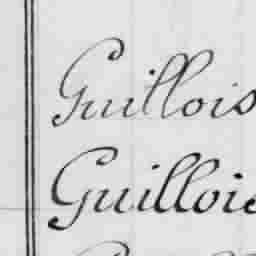 Guillois
Guillois